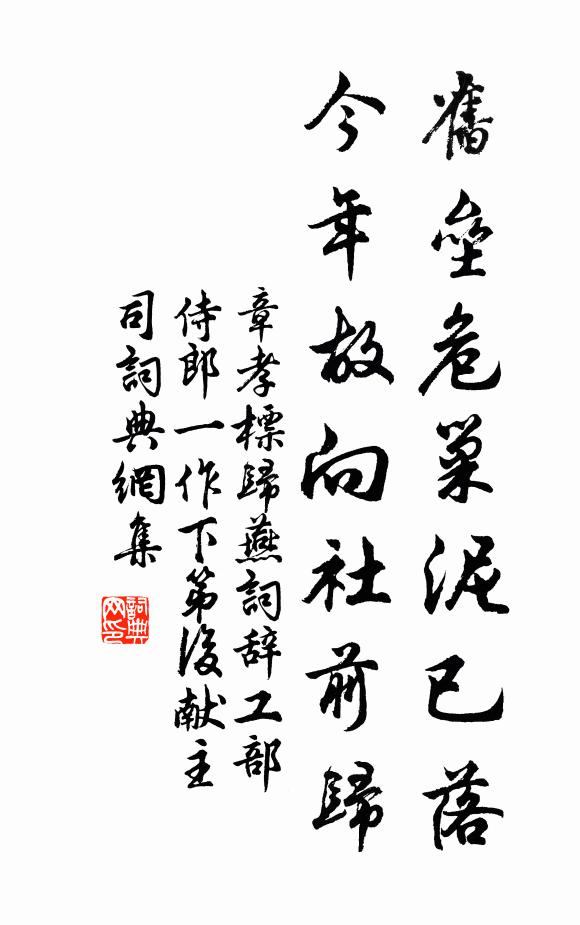 舊壘危巢泥已落
今年故向社前歸
章孝標歸燕詞辞工部
侍郎一作下第後献主
司詞典網集
詞典网印